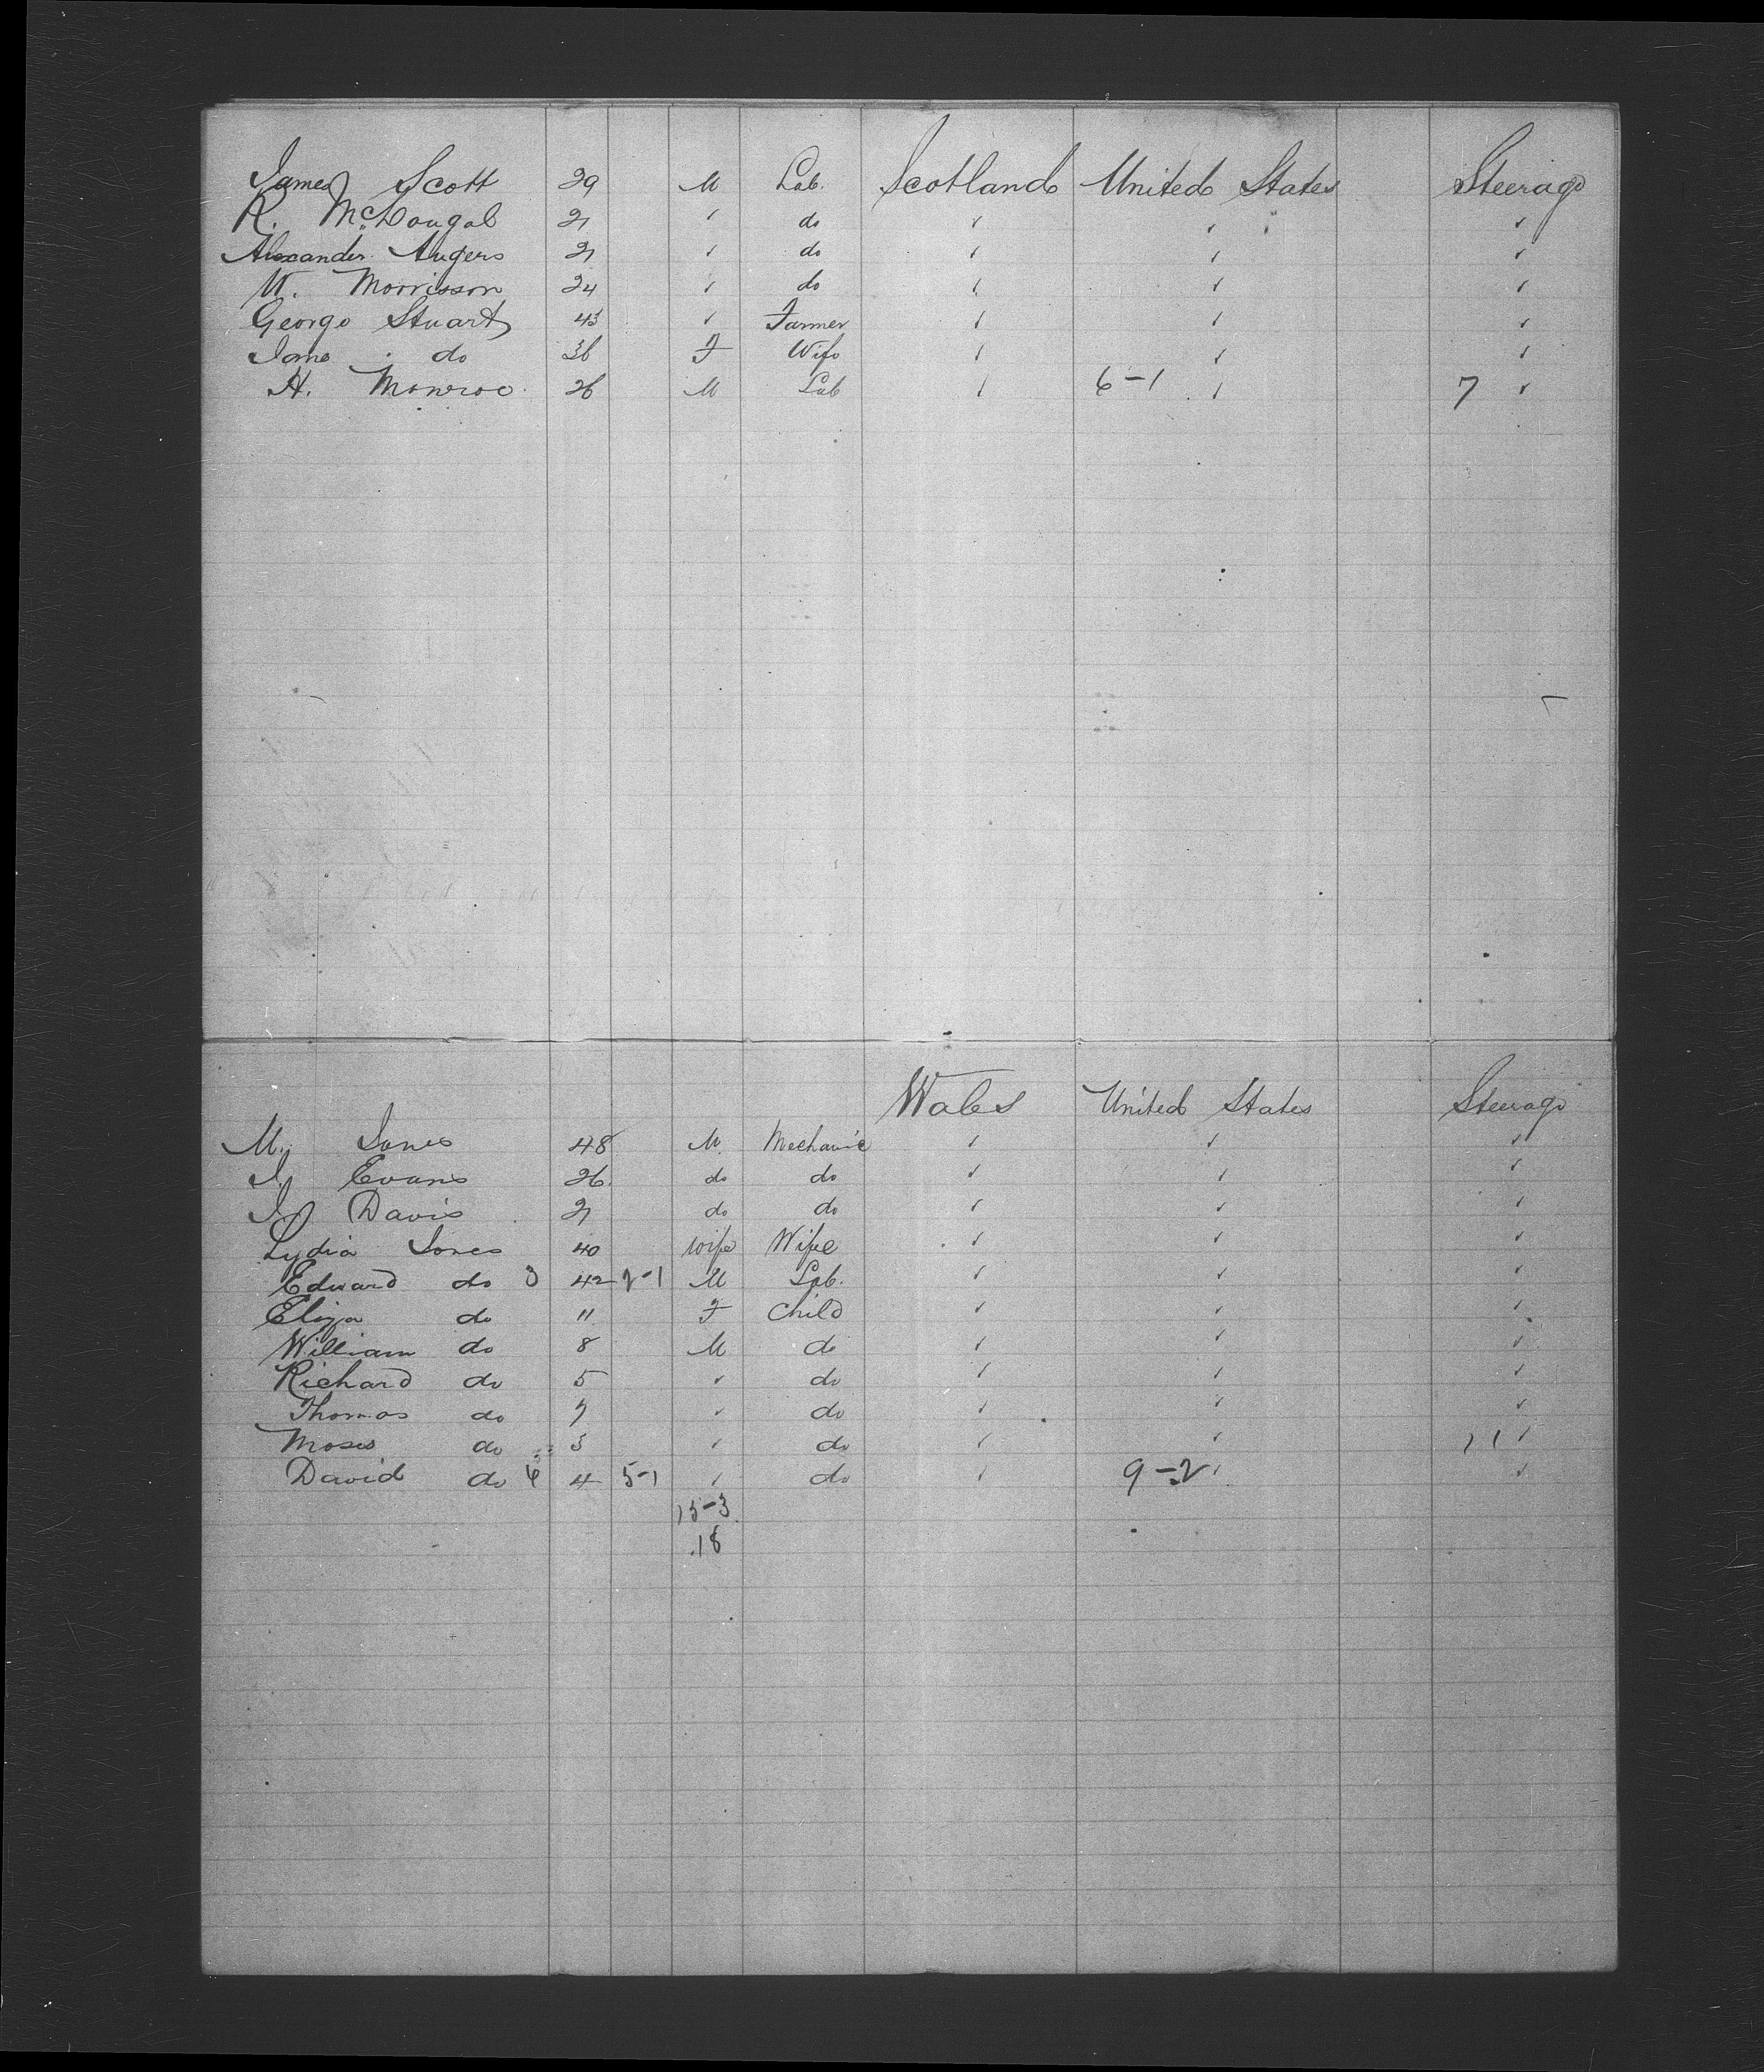 James Scott 29 M Lab. Scotland United States Steerage
R. McDougal 21 ✓ do ✓ ✓ ✓
Alexander Angers 21 ✓ do ✓ ✓ ✓
W. Morrisson 24 ✓ do ✓ ✓ ✓
George Stuart 43 ✓ Farmer ✓ ✓ ✓
Jane do 36 F Wife ✓ ✓ ✓
H. Monroe 26 M Lab ✓ 6-1 ✓ 7 ✓
Wales United States Steerage
M. Jones 48 M. Mechanic ✓ ✓ ✓
J. Evans 26. do do ✓ ✓ ✓
J. Davis 21 do do ✓ ✓ ✓
Lydia Jones 40 wife Wife ✓ ✓ ✓
Edward do 3 42 2-1 M Lab. ✓ ✓ ✓
Eliza do 11 F Child ✓ ✓ ✓
William do 8 M do ✓ ✓ ✓
Richard do 5 ✓ do ✓ ✓ ✓
Thomas do 7 ✓ do ✓ ✓ ✓
Moses do 3 ✓ do ✓ ✓ 11 ✓
David do 6 4 5-1 ✓ do ✓ 9-2 ✓ ✓
15-3
18